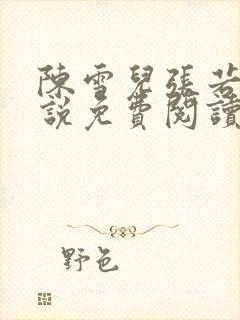 陳雪兒張若
說免費閱讀
野色